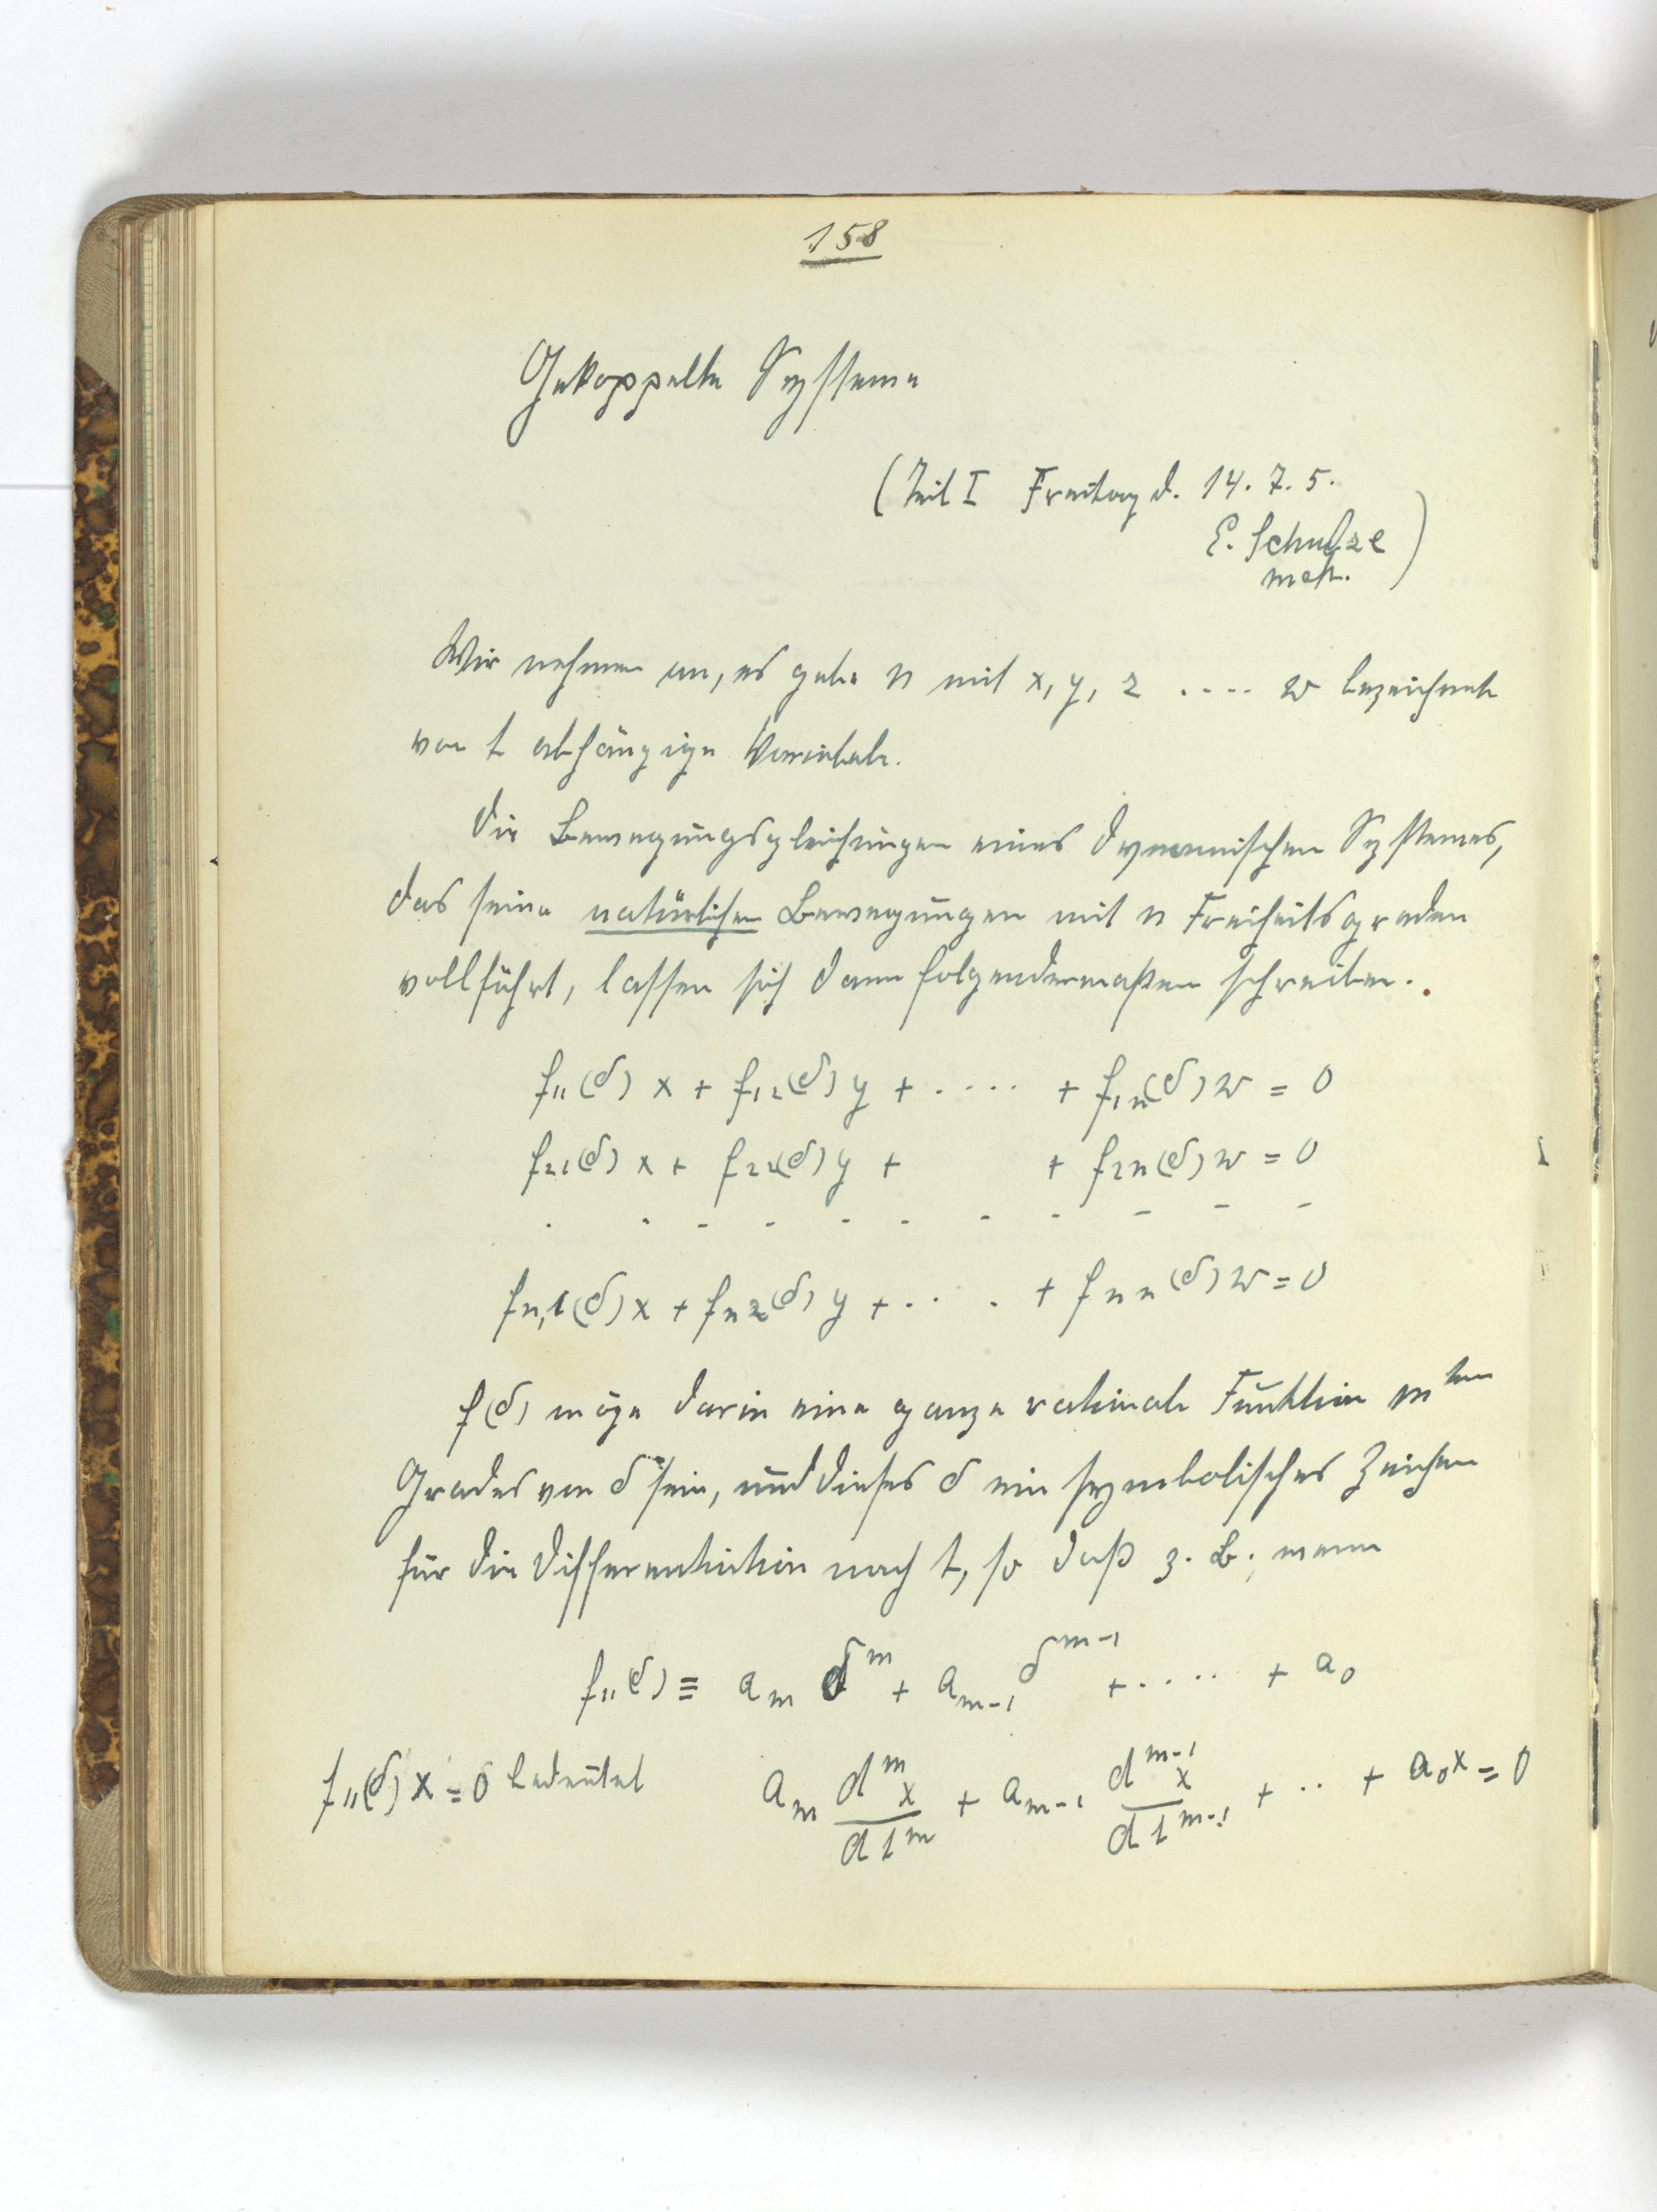 158
Gekoppelte Systeme
(Teil I Freitag d. 14. 7. 5.
E. Schulze
)
Wir nehmen an, es gebe n mit x, y, z .... w bezeichnete
von t abhängige Variabele.
Die Bewegungsgleichungen eines dynamischen Systemes,
das seine natürlichen Bewegungen mit n Freiheitsgraden
vollführt, lassen sich dann folgendermaßen schreiben.
f₁₁(δ) x + f₁₂(δ) y + ..... + f₁ₙ(δ) w = 0
f₂₁(δ) x + f₂₂(δ) y + + f₂ₙ(δ) w = 0
. . - - - - - - - - -
fₙ,₁(δ) x + fₙ₂(δ) y + . . . . + fₙₙ(δ) w = 0
f(δ) möge darin eine ganze rationale Funktion mᵗᵉⁿ
Grades von δ sein, und dieses δ ein symbolisches Zeichen
für die Differentiation nach t, so daß z. B., wenn
f₁₁(δ) ≡ aₘ δᵐ + aₘ₋₁ δᵐ⁻¹ + ..... + a₀
f₁₁(δ) x = 0 bedeutet aₘ dᵐx/dtᵐ + aₘ₋₁ dᵐ⁻¹x/dtᵐ⁻¹ + .. + a₀x = 0